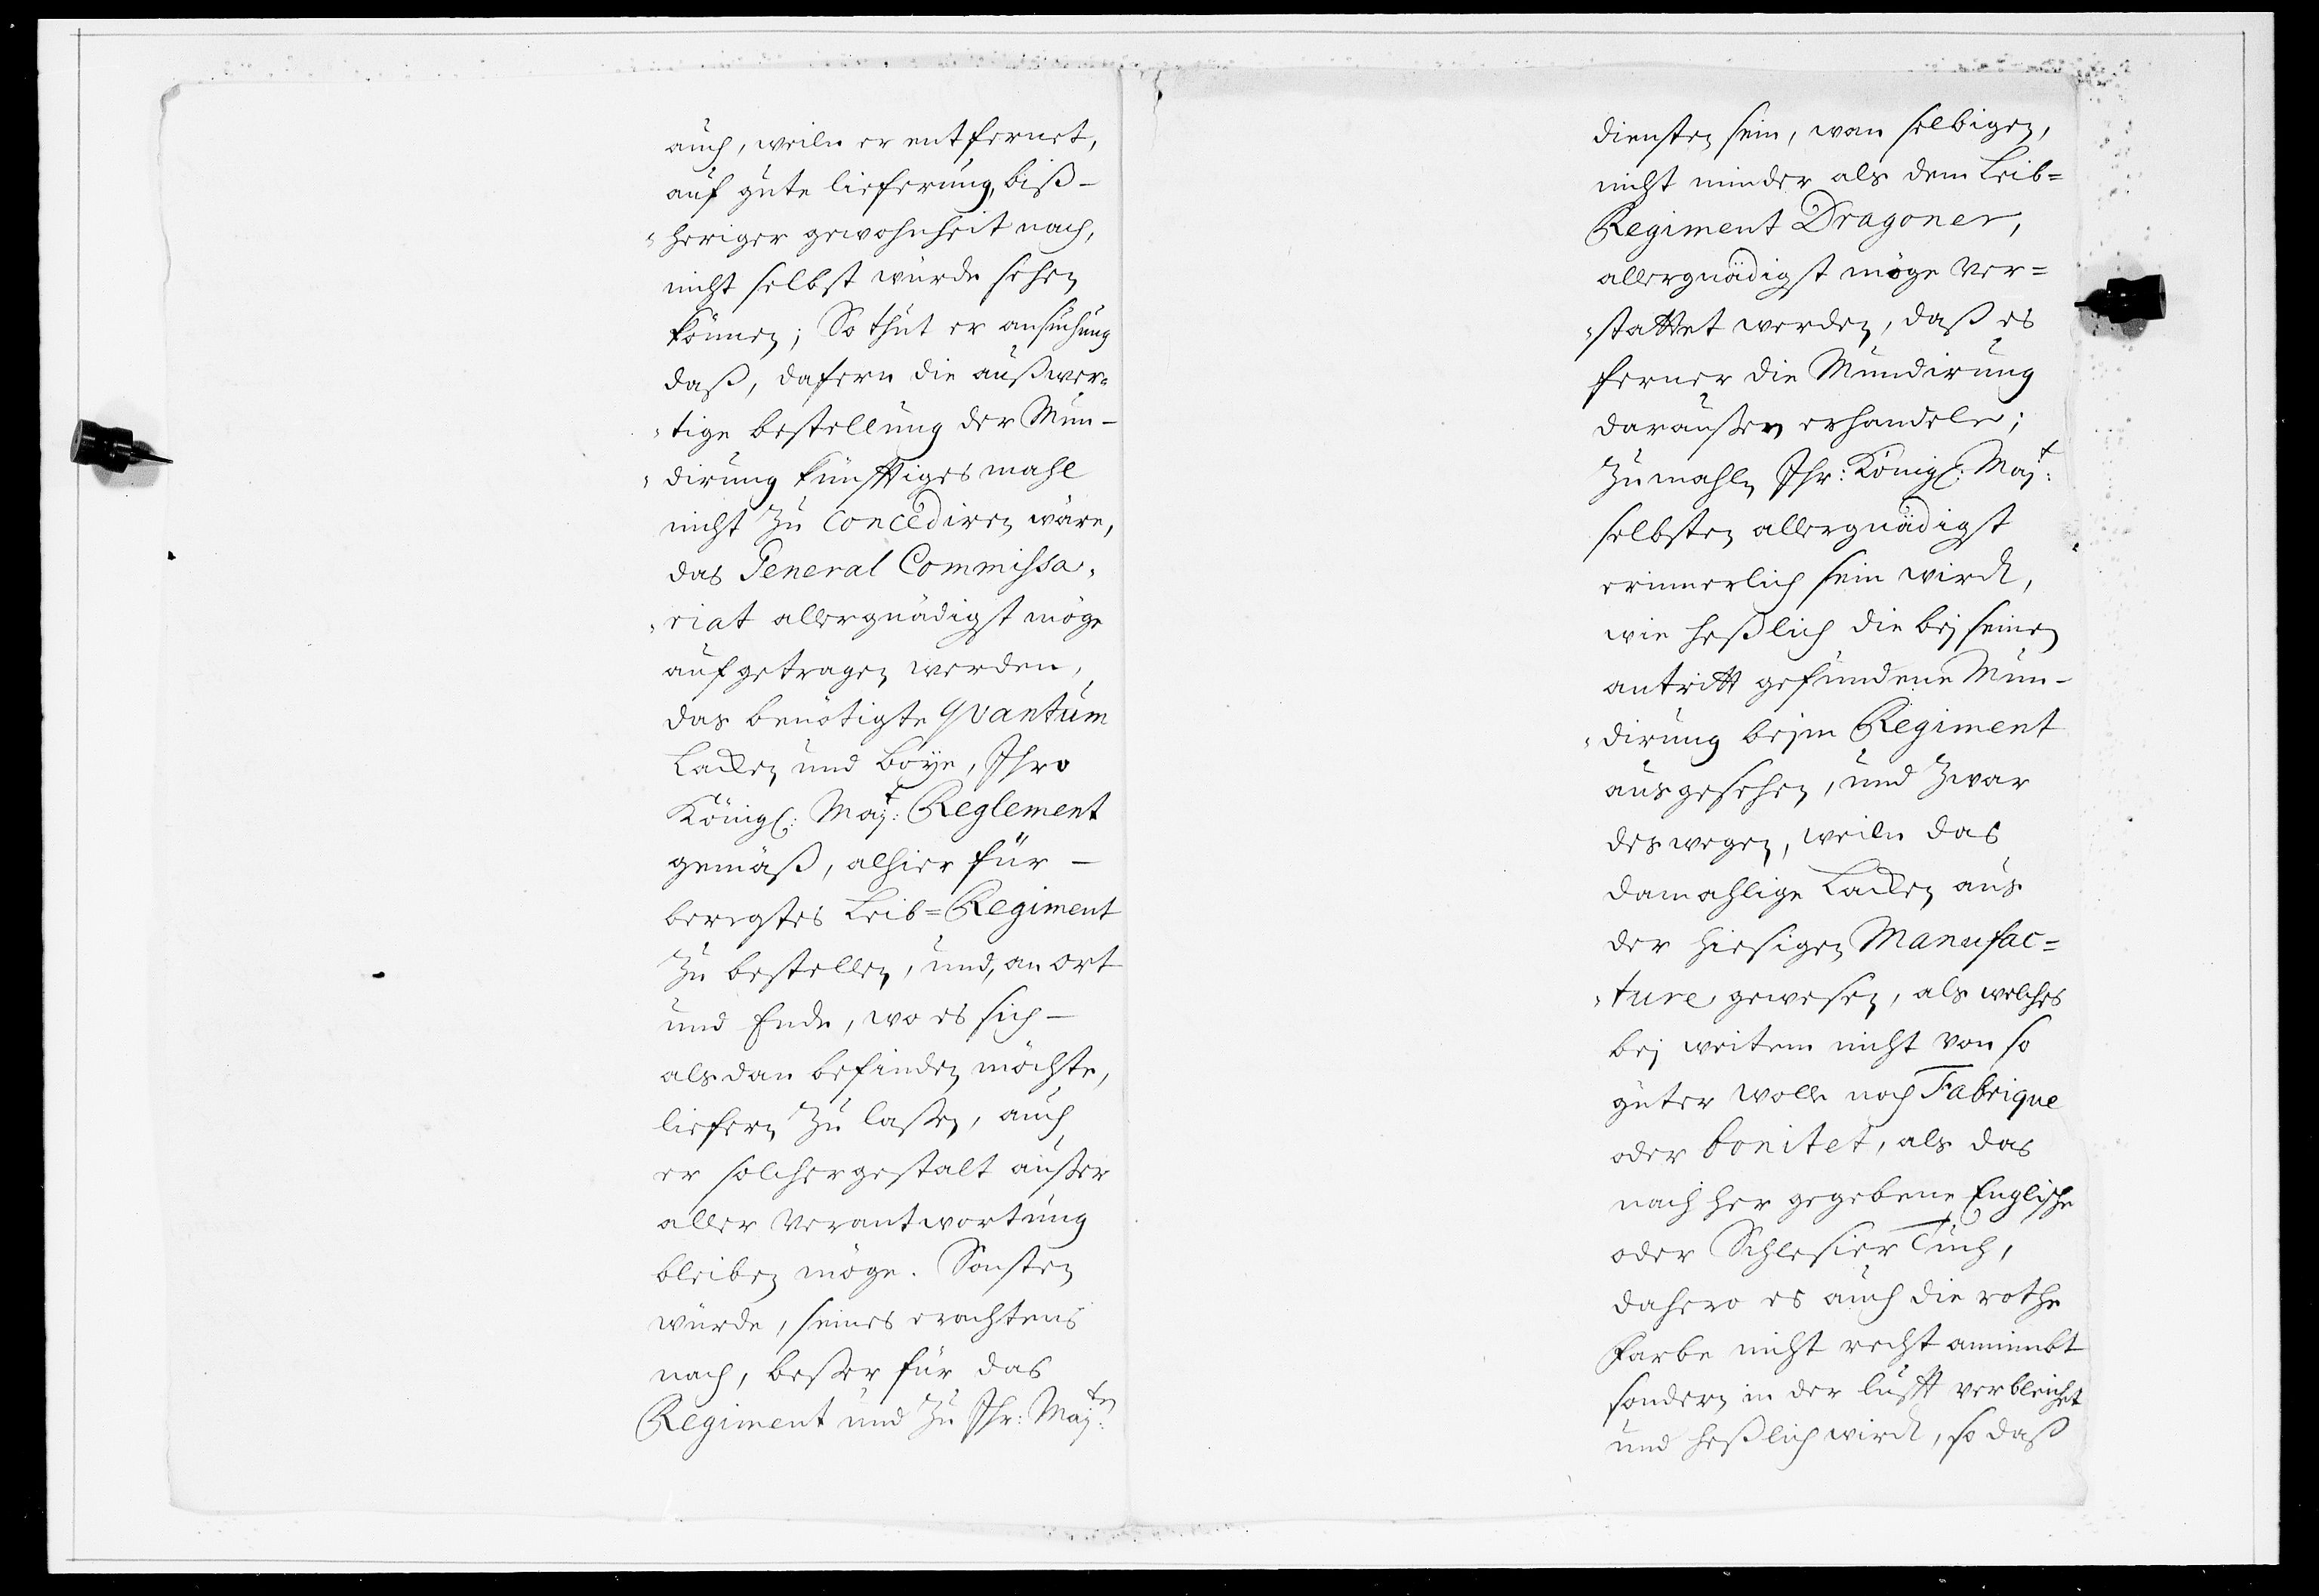 auch, weiln er entfernet,
auf gute lieferung, biß-
"heriger gewohnheit nach,
nicht selbst würde sehen
können; So thut er ansuchung
daß, dafern die außwer-
"tige bestellung der Mun-
"dirung künfftiges mahl
nicht zu concediren wäre,
das General Commissa-
"riat allergnädigst möge
aufgetragen werden,
das benötigte qvantum
Lacken und Boÿe, Ihro
Königl: Majt: Reglement
gemäß, alhier für -
beregtes Leib=Regiment
zu bestellen, und, an ort
und Ende, wo es sich -
alsdan befinden möchte,
liefern zu laßen, auch
er solchergestalt außer
aller verantwortung
bleiben möge. Sonsten
würde, seines erachtens
nach, beßer für das
Regiment und zu Ihr: Majten:
diensten sein, wan selbigen,
nicht minder als dem Leib=
Regiment Dragoner,
allergnädigst möge ver=
"stattet werden, daß es
ferner die Mundirung
daraußen erhandele;
Zumahlen Ihr: Königl: Majt:
selbsten allergnädigst
erinnerlich sein wirdt,
wie heßlich die bej seinen
antritt gefundene Mun-
"dirung bejm Regiment
ausgesehen, und zwar
deswegen, weiln das
damahlige Lacken aus
der hiesigen Manufac=
"ture gewesen, als welches
bej weitem nicht von so
guter wolle noch Fabrique
oder bonitet, als das
nachher gegebene Englische
oder Schlesier Tuch,
dahero es auch die rothe
farbe nicht recht annimbt
sondern in der lufft verbleichet
und heßlich wirdt, so daß